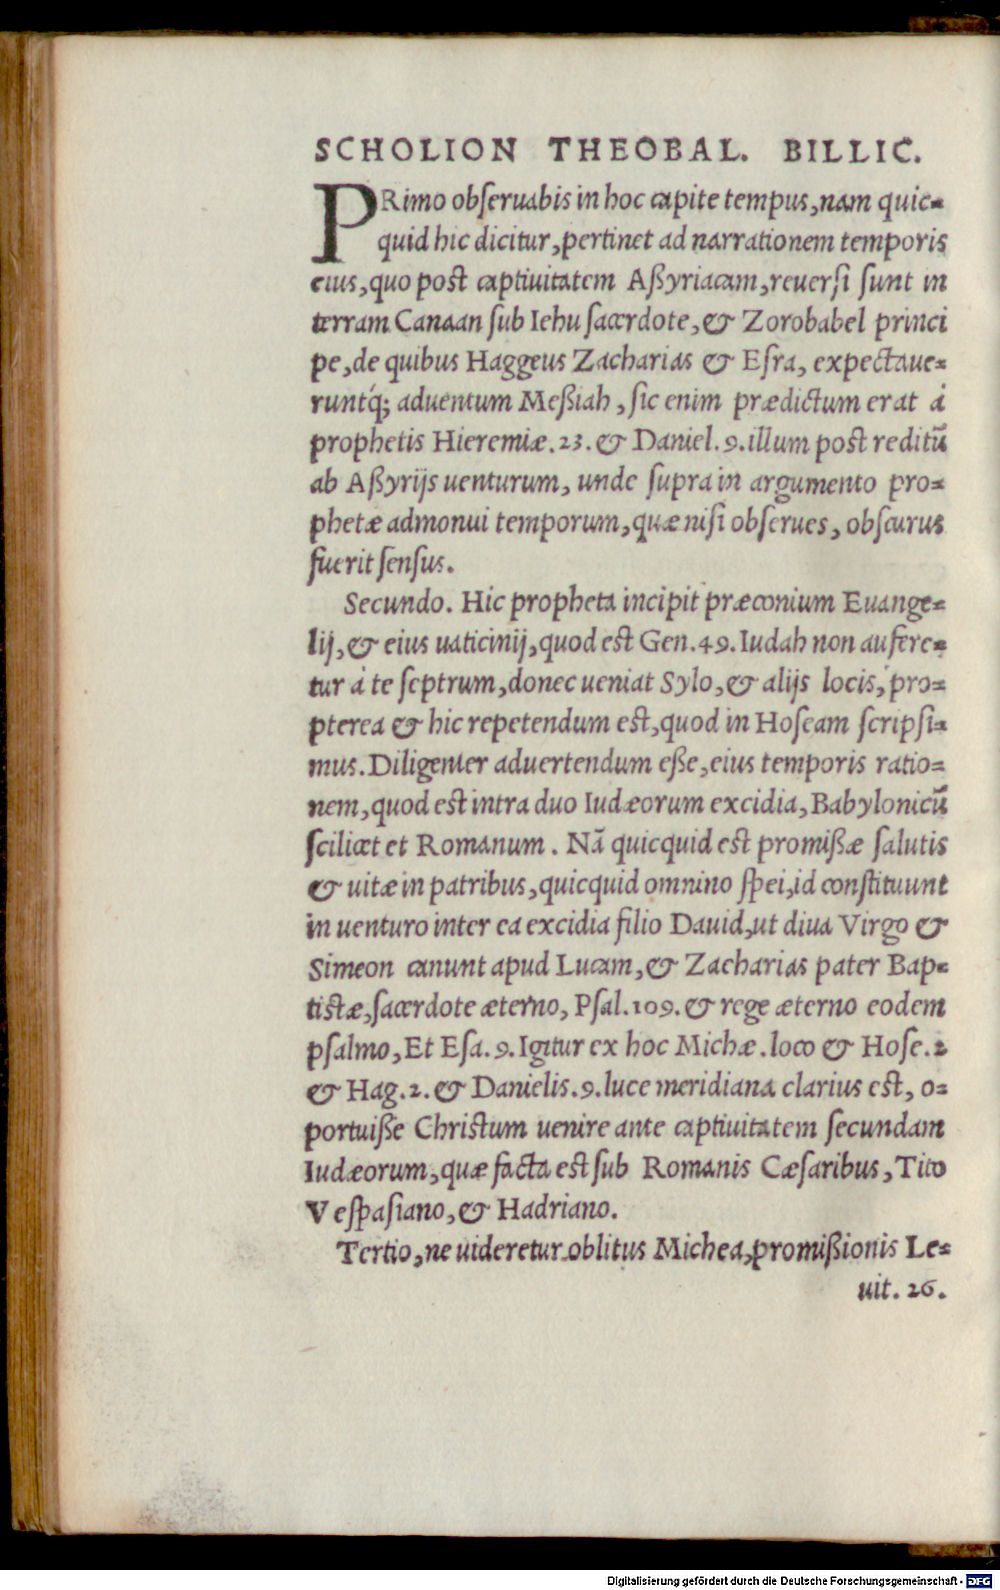 SCHOLION THEOBAL. BILLIC.
PRimo obſeruabis in hoc capite tempus, nam quic=
quid hic dicitur, pertinet ad narrationem temporis
eius, quo post captiuitatem Aßyriacam, reuerſi ſunt in
terram Canaan ſub Iehu ſacerdote, & Zorobabel princi
pe, de quibus Haggeus Zacharias & Eſra, expectaue=
runtq́; aduentum Meßiah, ſic enim prædictum erat à
prophetis Hieremiæ. 23. & Daniel. 9. illum post reditū
ab Aßyrijs uenturum, unde ſupra in argumento pro=
phetæ admonui temporum, quæ niſi obſerues, obſcurus
fuerit ſenſus.
Secundo. Hic propheta incipit præconium Euange=
lij, & eius uaticinij, quod est Gen. 49. Iudah non aufere=
tur à te ſeptrum, donec ueniat Sylo, & alijs locis, pro=
pterea & hic repetendum est, quod in Hoſeam ſcripſi=
mus. Diligenter aduertendum eße, eius temporis ratio=
nem, quod est intra duo Iudæorum excidia, Babylonicū
ſcilicet et Romanum. Nā quicquid est promißæ ſalutis
& uitæ in patribus, quicquid omnino ſpei, id conſtituunt
in uenturo inter ea excidia filio Dauid, ut diua Virgo &
Simeon canunt apud Lucam, & Zacharias pater Bap=
tistæ, ſacerdote æterno, Pſal. 109. & rege æterno eodem
pſalmo, Et Eſa. 9. Igitur ex hoc Michæ. loco & Hoſe. 2
& Hag. 2. & Danielis. 9. luce meridiana clarius est, o=
portuiße Christum uenire ante captiuitatem ſecundam
Iudæorum, quæ facta est ſub Romanis Cæſaribus, Tito
Veſpaſiano, & Hadriano.
Tertio, ne uideretur oblitus Michea, promißionis Le=
uit. 26.
Digitalisierung gefördert durch die Deutsche Forschungsgemeinschaft - DFG